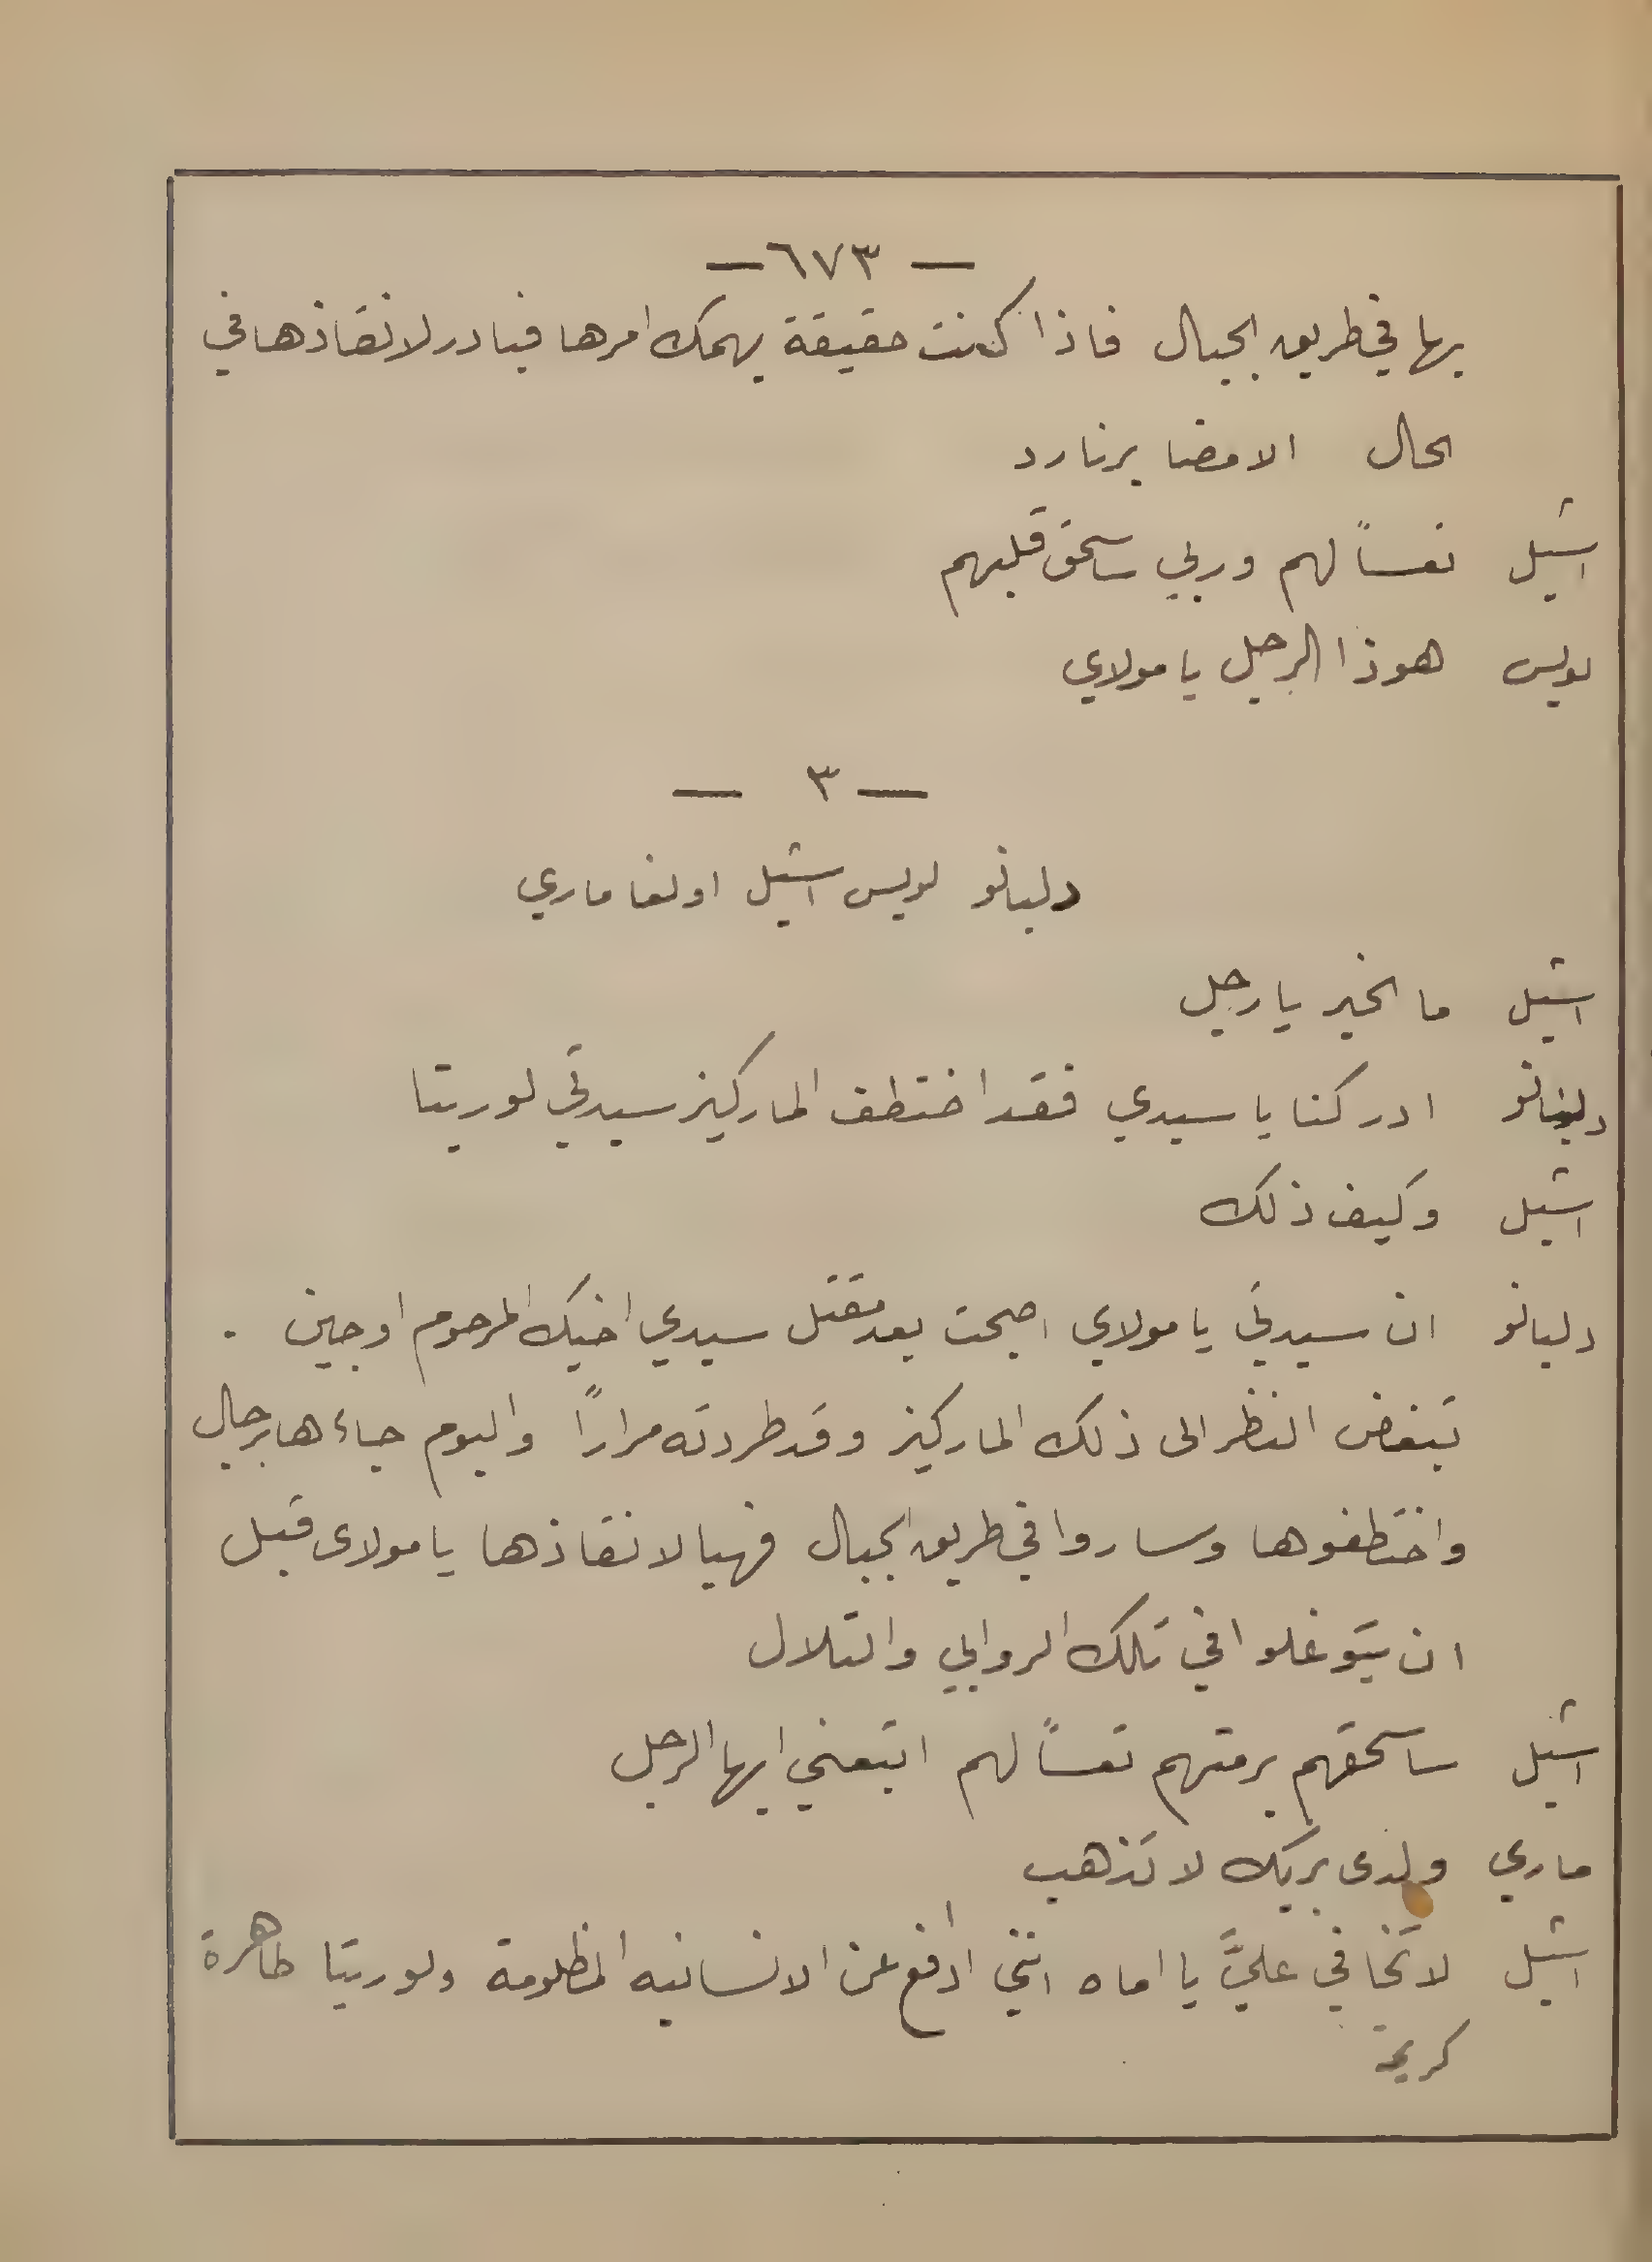 — ٦٧٣ —
بها في طريق الجبال فاذا كنت حقيقة يهمك امرها فبادر لانقاذها في
الحال الامضا برنارد
اشيل تعساً لهم وربي ساسحق قلبهم
لويس هوذا الرجل يا مولاي
— ٣ —
دلبانو لويس اشيل اولغا ماري
اشيل ما الخبر يا رجل
دلبانو ادركنا يا سيدي فقد اختطف الماركيز سيدتي لوريتا
اشيل وكيف ذلك
دلبانو ان سيدتي يا مولاي اصبحت بعد مقتل سيدي اخيك المرحوم اوجين .
تبغض النظر الى ذلك الماركيز وقد طردته مراراً واليوم جاءها برجال
واختطفوها وساروا في طريق الجبال فهيا لانقاذها يا مولاى قبل
ان يتوغلوا في تلك الروابي والتلال
اشيل ساسحقهم برمتهم تعساً لهم اتبعني ايها الرجل
ماري ولدى بربك لا تذهب
اشيل لا تخافي عليَّ يا اماه انني ادافع عن الانسانيه المظلومة ولوريتا طاهرة
كريمة